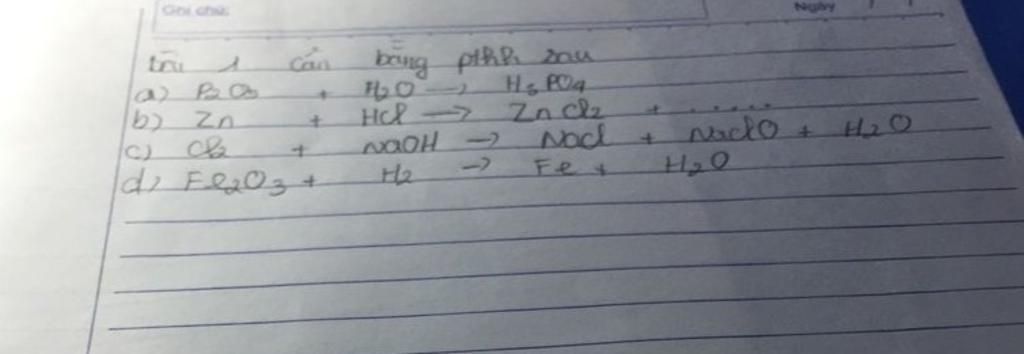 Ghi chú: Ngày
Bài 1 Cân bằng pthh sau
a) P2O5 + H2O → H3PO4
b) Zn + HCl → ZnCl2 + ......
c) Cl2 + NaOH → NaCl + NaClO + H2O
d) Fe2O3 + H2 → Fe + H2O